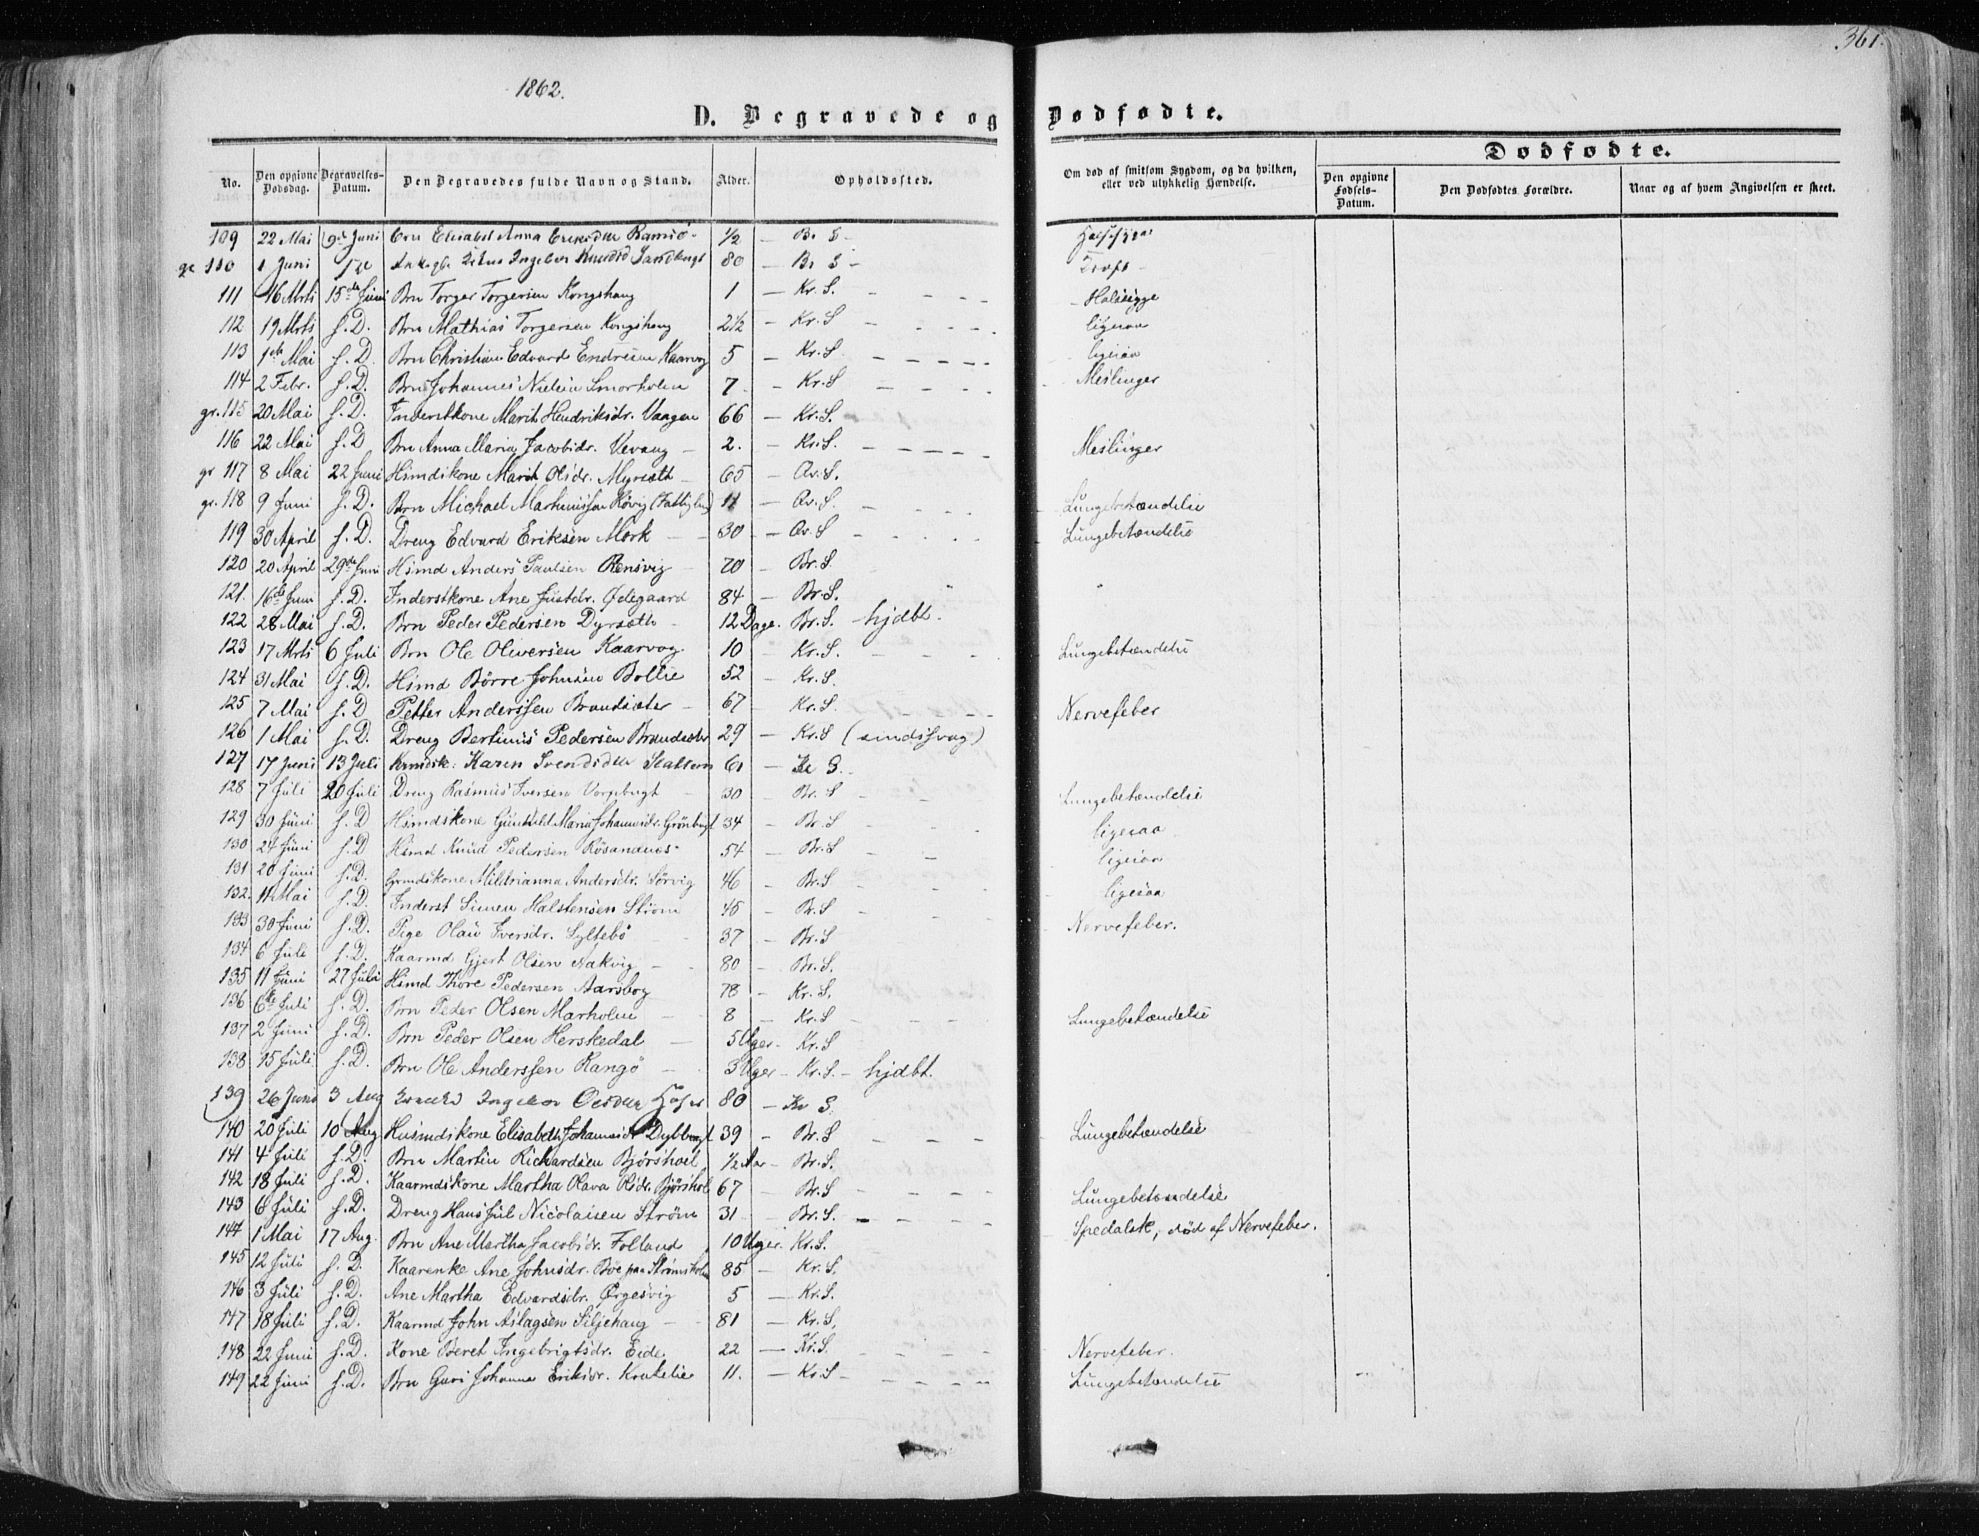 1862.
361.
D. Begravede og Dødfødte.
No. | Den opgivne Dødsdag. | Begravelses-Datum. | Den Begravedes fulde Navn og Stand. | Alder. | Opholdssted. | Om død af smitsom Sygdom, og da hvilken, eller ved ulykkelig Hændelse. | Dødfødte. | Den opgivne Fødsels-Datum. | Den Dødfødtes Forældre. | Naar og af hvem Angivelsen er skeet.
109 22 Mai Juni Elisabet Anna 1/2 – Br S –
110 1 Juni Ingebor 80 – Br S –
111 16 Mrts 15de Juni Brn Torger Torgersen Kongshaug 1 – Kr. S. Halssyge
112 19 Mrts s. D. Brn Mathias Torgersen Kongshaug 2½ – Kr. S ligesaa
113 1ste Mai s. D. Brn Christian Edvard Endresen Kaarvog 5 – Kr. S ligesaa
114 2 Febr. s. D. Brn Johannes Nielsen Smorholen 7 – Kr. S Meslinger
gr. 115 20 Mai s. D. Inderstkone Marit Hendriksdr. Vaagen 66 – Kr. S.
116 22 Mai s. D Brn Anna Maria Jacobsdr. Vevang – 2. – Kr. S. Meslinger
gr 117 8 Mai 22 Juni Hsmdskone Marit Olsdr. Myrsæth – 65 – Qv. S.
gr. 118 9 Juni s. D. Brn Michael Høvig 11 – Qv. S. Lungebetændelse
119 30 April s. D. Dreng Edvard Eriksen Mork – 30 – Qv. S Lungebetændelse
120 20 April 29de Juni Hsmd Anders Paulsen Rensvig – 70 – Br. S.
121. 16de Juni s. D. Inderstkone Ane Justdr. Ødegaard 84 – Br. S.
122 28 Mai s. D. Brn Peder Pedersen Dyrsæth – 12 Dage. Br. S. – hjdbt.
123 17 Mrts 6 Juli Brn Ole Oliversen Kaarvog 10 – Kr. S. Lungebetændelse
124 31 Mai s. D. Hsmd Børre Johnsen Bollie 52 – Kr. S.
125 7 Mai s. D Petter Anderssen Brandsæter – 67 – Kr. S. Nervefeber
126 1 Mai s. D. Dreng Bertinus Pedersen Brandsæter 29 – Kr. S (sindssvag)
127 17 Juni 13 Juli Karen 61 – Kr S.
128 7 Juli 20 Juli Dreng Rasmus Iversen Vorpebugt – 30 – Br. S Lungebetændelse
129 30 Juni s. D Hsmdskone Gunhild Maria Johannsdr. Grønbugt 34 – Br. S ligesaa
130 24 Juni s. D Hsmd Knud Pedersen Røsandnes – 54 – Br. S ligesaa
131 20 Juni s. D. Grmdskone Mildrianna Andersdr. Sørvig 46 – Br. S ligesaa
132. 11 Mai s. D. Inderst Simen Halstensen Strøm 45 – Br. S
133 30 Juni s. D. Pige Olau Iversdr. Syltebø 37 – Br. S Nervefeber.
134 6 Juli s. D. Kaarmd Gjert Olsen Nakvig – 80 – Br. S.
135 11 Juni 27 Juli Hsmd Thore Pedersen Aarsbog 78 – Kr. S.
136 6te Juli s. D. Brn Peder Olsen Marholm – 8 – Kr. S Lungebetændelse
137 2 Juni s. D. Brn Peder Olsen Herskedal – 5 Uger – Kr. S
138 15 Juli s. D. Brn Ole Anderssen Rangø – 3 Uger – Kr. S. – hjdbt.
139 26 Juni 3 Aug Ingebor 80 – Kr S.
140 20 Juli 10 Aug Husmdskone Elisabeth Johannsdr Dybbugt 39 – Br. S Lungebetændelse
141 4 Juli s. D. Brn Martin Richardsen Bjørshol ½ Aar – Br. S.
142 18 Juli s. D. Kaarmdskone Martha Olava Olsdr. Bjørshol 67 – Br. S Lungebetændelse
143 6 Juli s. D. Dreng Hans Jul Nicolaisen Strøm 31 – Br. S. Spedalsk, død af Nervefeber.
144 1 Mai 17 Aug. Brn Ane Martha Jacobsdr. Folland 10 Uger. Kr. S.
145 12 Juli s. D. Kaarenke Ane Johnsdr. Boe paa Strømsholm 85 – Kr. S.
146 3 Juli s. D. Ane Martha Edvardsdr. Ørgesvig 5 – Kr. S.
147 18 Juli s. D. Kaarmd John Aslagsen Siljehaug – 81 – Kr. S.
148 22 Juni s. D. Kone Beret Ingebrigtsdr. Eide 22 – Kr. S. Nervefeber.
149 22 Juni s. D. Brn Guri Johanna Eriksdr. Kratelie 11. – Kr. S – Lungebetændelse